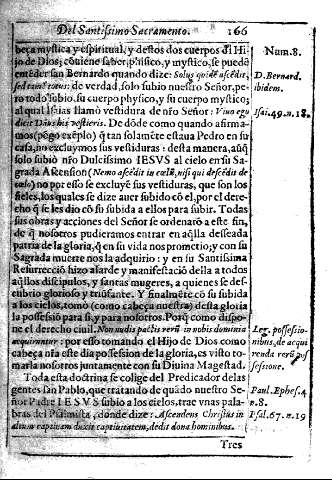 Del Santissimo Sacramento. 166
beça mystica y espiritual, y destos dos cuerpos del Hi-
jo de Dios; cõuiene saber, phisico, y mystico, se puede
entẽder san Bernardo quando dize: Solus quidẽ ascẽdit,
sed tamẽ totus: de verdad, solo subio nuestro Señor, pe-
ro todo subio, su cuerpo physico, y su cuerpo mystico;
al qual Isaias llamò vestidura de nro Señor: Viuo ego
dicit Dñus his vestieris. De dõde como quando afirma-
mos (põgo exẽplo) q̃ tan solamẽte estaua Pedro en su
casa, no excluymos sus vestiduras: desta manera, aũq̃
solo subiò nro Dulcissimo IESVS al cielo en su Sa-
grada Ascension (Nemo ascẽdit in cœlũ, nisi qui descẽdit de
cœlo) no por esso se excluyẽ sus vestiduras, que son los
fieles, los quales se dize auer subido cõ el, por el dere-
cho q̃ se les dio cõ su subida a ellos para subir. Todas
sus obras y acciones del Señor se ordenarõ a este fin,
de q̃ nosotros pudieramos entrar en aq̃lla desseada
patria de la gloria, q̃ en su vida nos prometio; y con su
Sagrada muerte nos la adquirio: y en su Santissima
Resurrecciõ hizo alarde y manifestaciõ della a todos
aq̃llos discipulos, y santas mugeres, a quienes se des-
cubrio glorioso y triũfante. Y finalmẽte cõ su subida
a los cielos, tomo (como cabeça nuestra) desta gloria
la possessiõ para si, y para nosotros. Porq̃ como dispo-
ne el derecho ciuil. Non nudis pactis rerũ in nobis dominia
acquiruntur: por esso tomando el Hijo de Dios como
cabeça nra este dia possession de la gloria, es visto to-
marla nosotros juntamente con su Diuina Magestad.
Toda esta doctrina se colige del Predicador de las
gentes san Pablo, que tratando de quãdo nuestro Se-
ñor Padre IESVS subio a los cielos, trae vnas pala-
bras del Psalmista, donde dize: Ascendens Christus in
altum captiuam duxit captiuitatem, dedit dona hominibus.
Tres
Num. 8.
D. Bernard.
ibidem.
Isai. 49. n. 18.
Leg. possessio-
nibus, de acqui
renda rerũ pos
sessione.
Paul. Ephes. 4
n. 8.
Psal. 67. n. 19